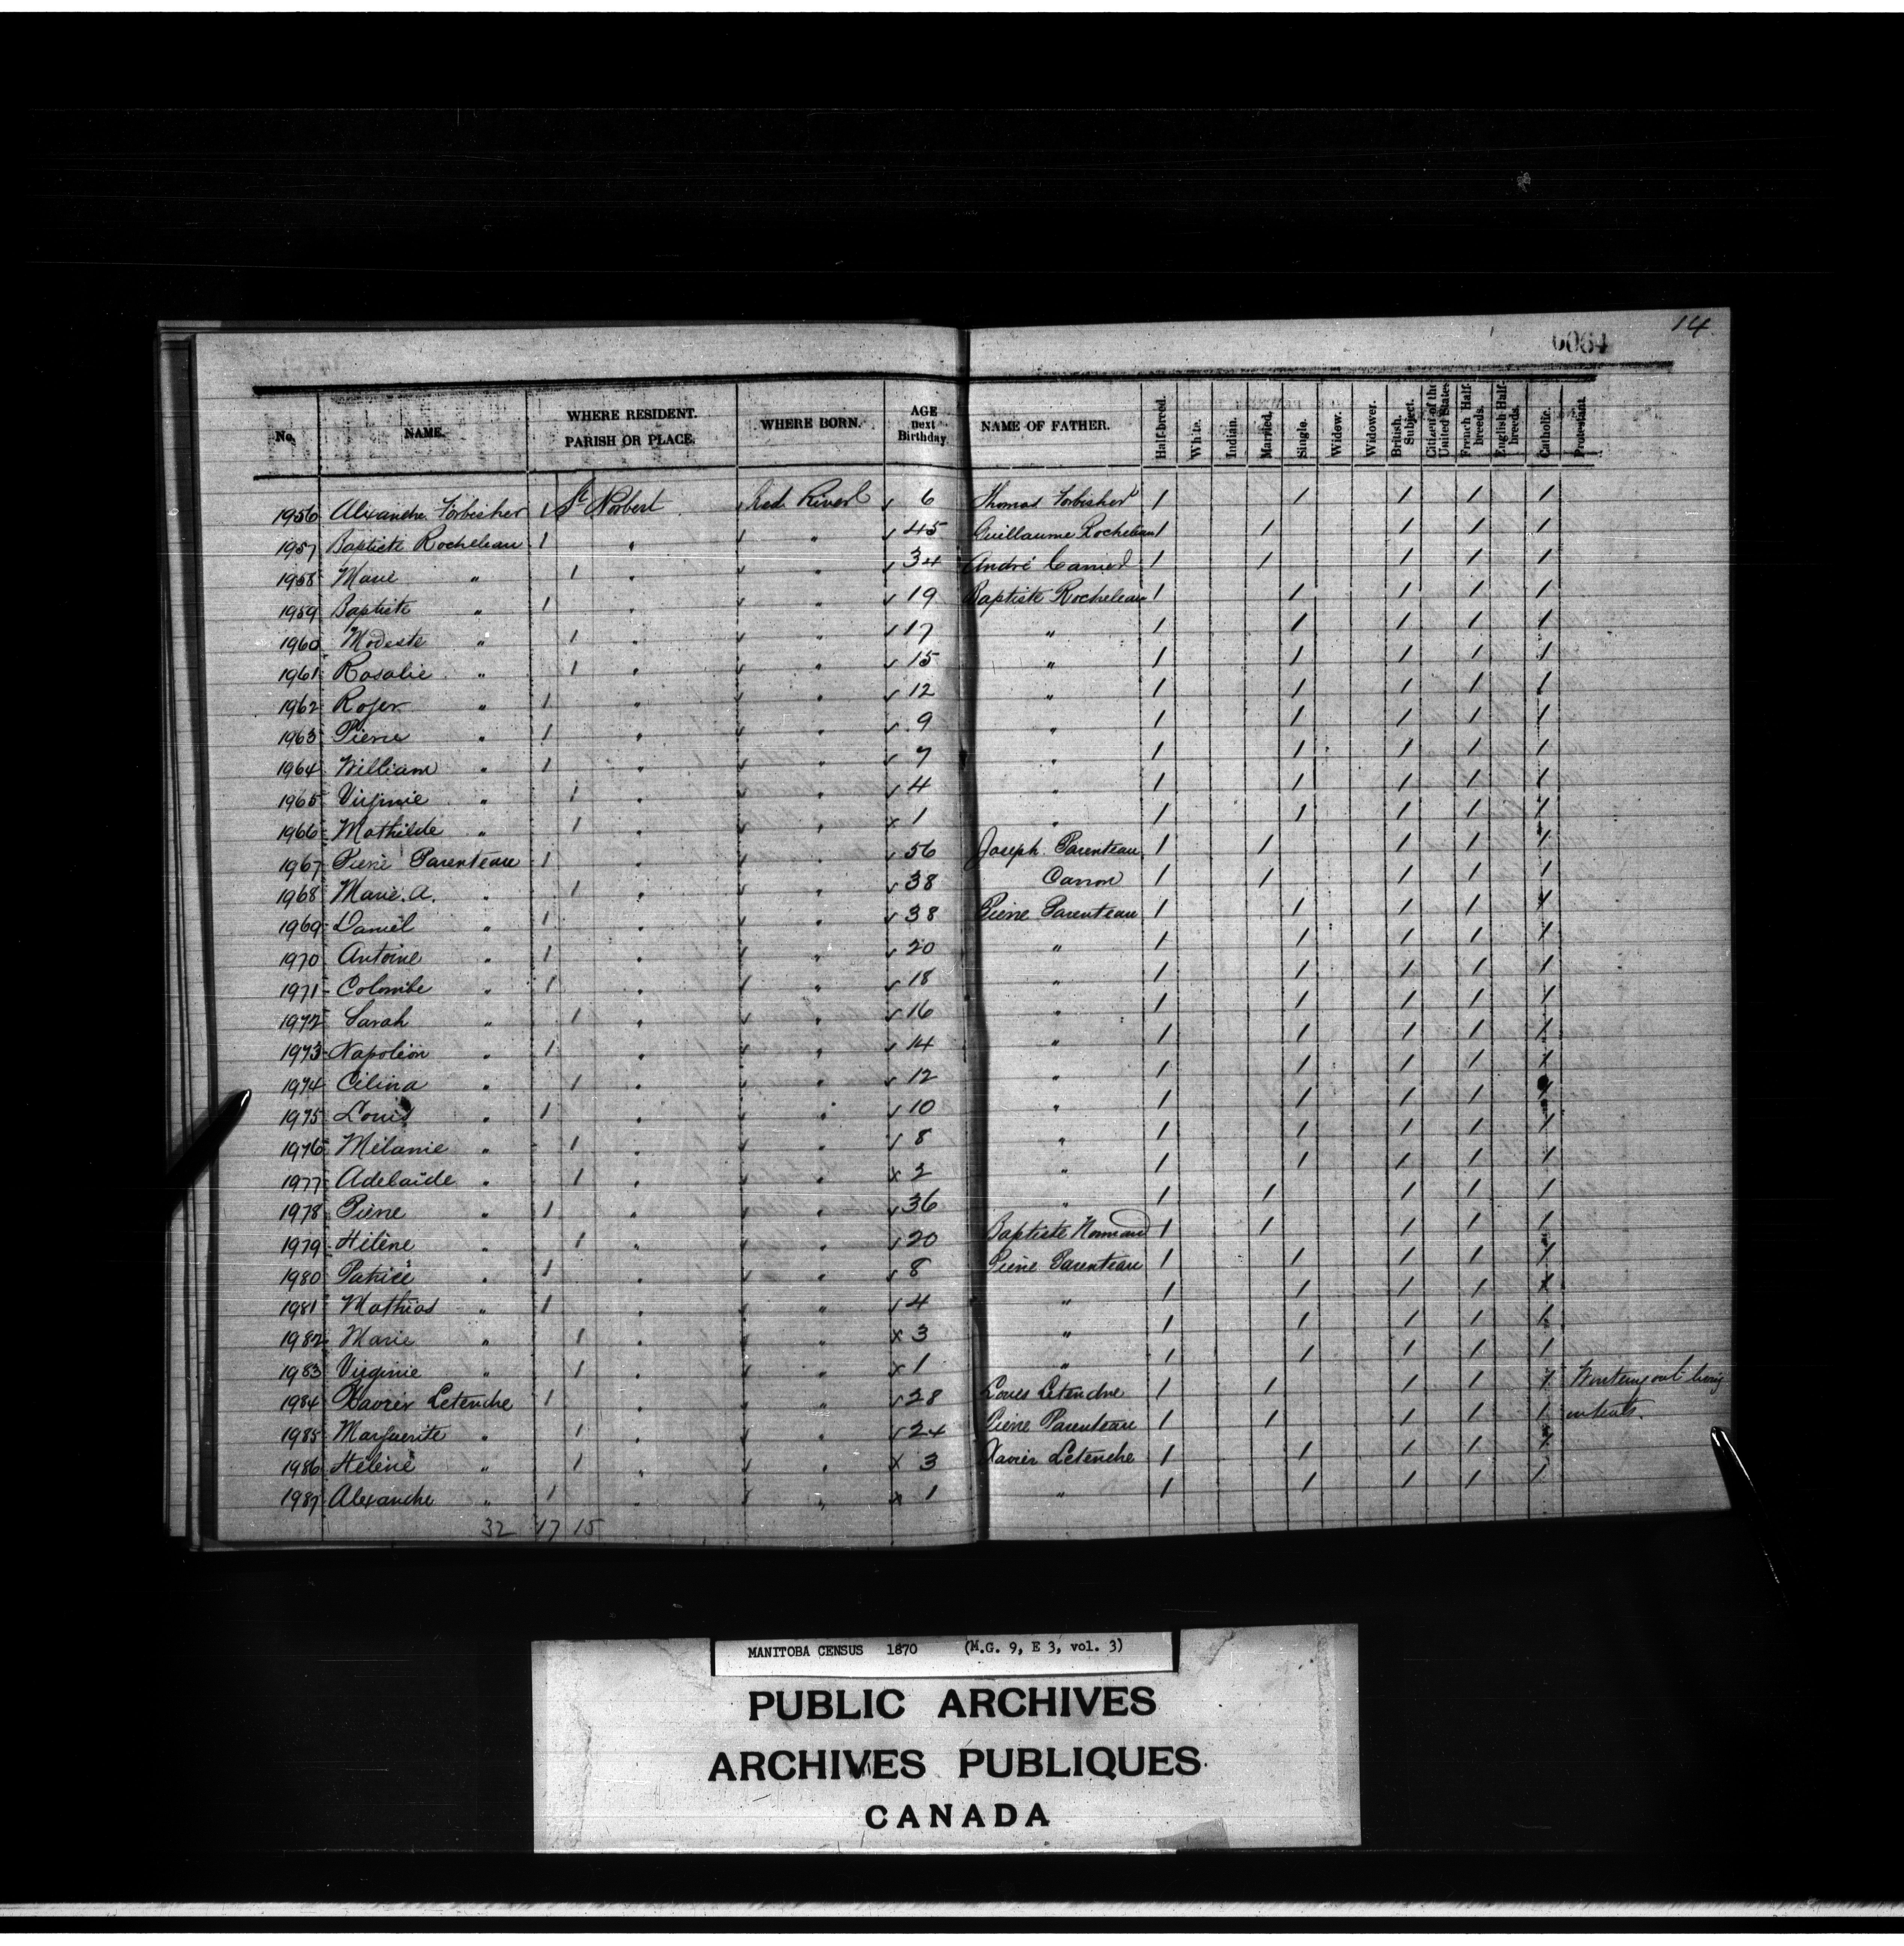 14
0064
No. NAME. WHERE RESIDENT. PARISH OR PLACE. WHERE BORN. AGE next Birthday NAME OF FATHER. Half-breed. White. Indian. Married. Single. Widow. Widower. British Subject. Citizen of the United States. French Half-breeds. English Half-breeds. Catholic. Protestant.
1956 Alexandre Forbisher 1 St Norbert Red River 6 Thomas Forbisher 1 1 1 1 1
1957 Baptiste Rocheleau 1 " " 45 Guillaume Rocheleau 1 1 1 1 1
1958 Marie " 1 " " 34 André Carrier 1 1 1 1 1
1959 Baptiste " 1 " " 19 Baptiste Rocheleau 1 1 1 1 1
1960 Modeste " 1 " " 17 " 1 1 1 1 1
1961 Rosalie " 1 " " 15 " 1 1 1 1 1
1962 Roger " 1 " " 12 " 1 1 1 1 1
1963 Pierre " 1 " " 9 " 1 1 1 1 1
1964 William " 1 " " 7 " 1 1 1 1 1
1965 Virginie " 1 " " 4 " 1 1 1 1 1
1966 Mathilde " 1 " " x 1 " 1 1 1 1 1
1967 Pierre Parenteau 1 " " 56 Joseph Parenteau 1 1 1 1 1
1968 Marie. A. " 1 " " 38 Caron 1 1 1 1 1
1969 Daniel " 1 " " 38 Pierre Parenteau 1 1 1 1 1
1970 Antoine " 1 " " 20 " 1 1 1 1 1
1971 Colombe " 1 " " 18 " 1 1 1 1 1
1972 Sarah " 1 " " 16 " 1 1 1 1 1
1973 Napoléon " 1 " " 14 " 1 1 1 1 1
1974 Célina " 1 " " 12 " 1 1 1 1 1
1975 Louis " 1 " " 10 " 1 1 1 1 1
1976 Mélanie " 1 " " 8 " 1 1 1 1 1
1977 Adelaïde " 1 " " x 2 " 1 1 1 1 1
1978 Pierre " 1 " " 36 " 1 1 1 1 1
1979 Hélène " 1 " " 20 Baptiste Normand 1 1 1 1 1
1980 Patrice " 1 " " 8 Pierre Parenteau 1 1 1 1 1
1981 Mathias " 1 " " 4 " 1 1 1 1 1
1982 Marie " 1 " " x 3 " 1 1 1 1 1
1983 Virginie " 1 " " x 1 " 1 1 1 1 1
1984 Xavier Letendre 1 " " 28 Louis Letendre 1 1 1 1 1 Wintering out living
1985 Marguerite " 1 " " 24 Pierre Parenteau 1 1 1 1 1 in tents.
1986 Hélène " 1 " " x 3 Xavier Letendre 1 1 1 1 1
1987 Alexandre " 1 " " x 1 " 1 1 1 1 1
32 17 15
MANITOBA CENSUS 1870 (M.G. 9, E 3, vol. 3)
PUBLIC ARCHIVES
ARCHIVES PUBLIQUES
CANADA